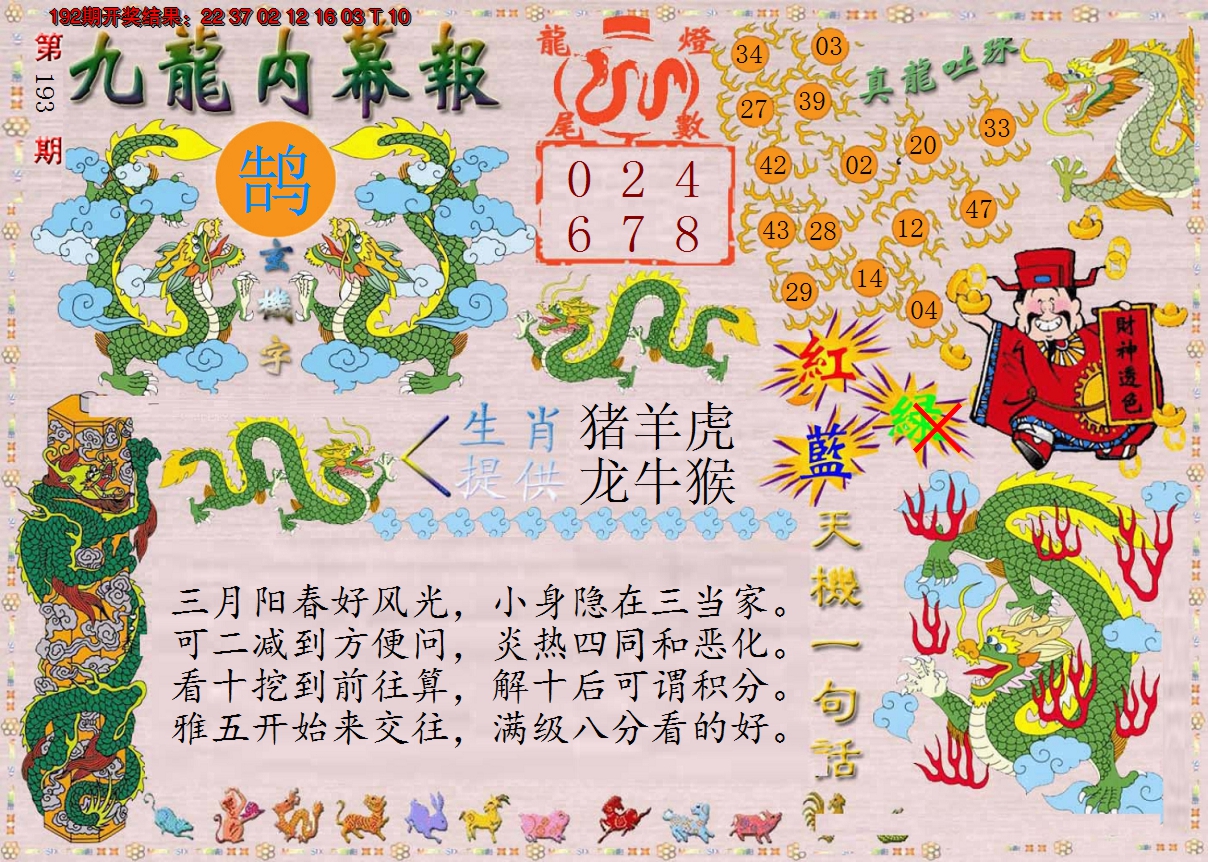 192期开奖结果：22 37 02 12 16 03 T 10
第193期
九龍内幕報
鹄
玄機字
龍燈
尾數
0 2 4
6 7 8
真龍吐珠
34
03
27
39
33
20
42
02
47
43
28
12
14
29
04
紅
綠
藍
財神透色
生肖
提供
猪羊虎
龙牛猴
天機一句話
三月阳春好风光，小身隐在三当家。
可二减到方便问，炎热四同和恶化。
看十挖到前往算，解十后可谓积分。
雅五开始来交往，满级八分看的好。